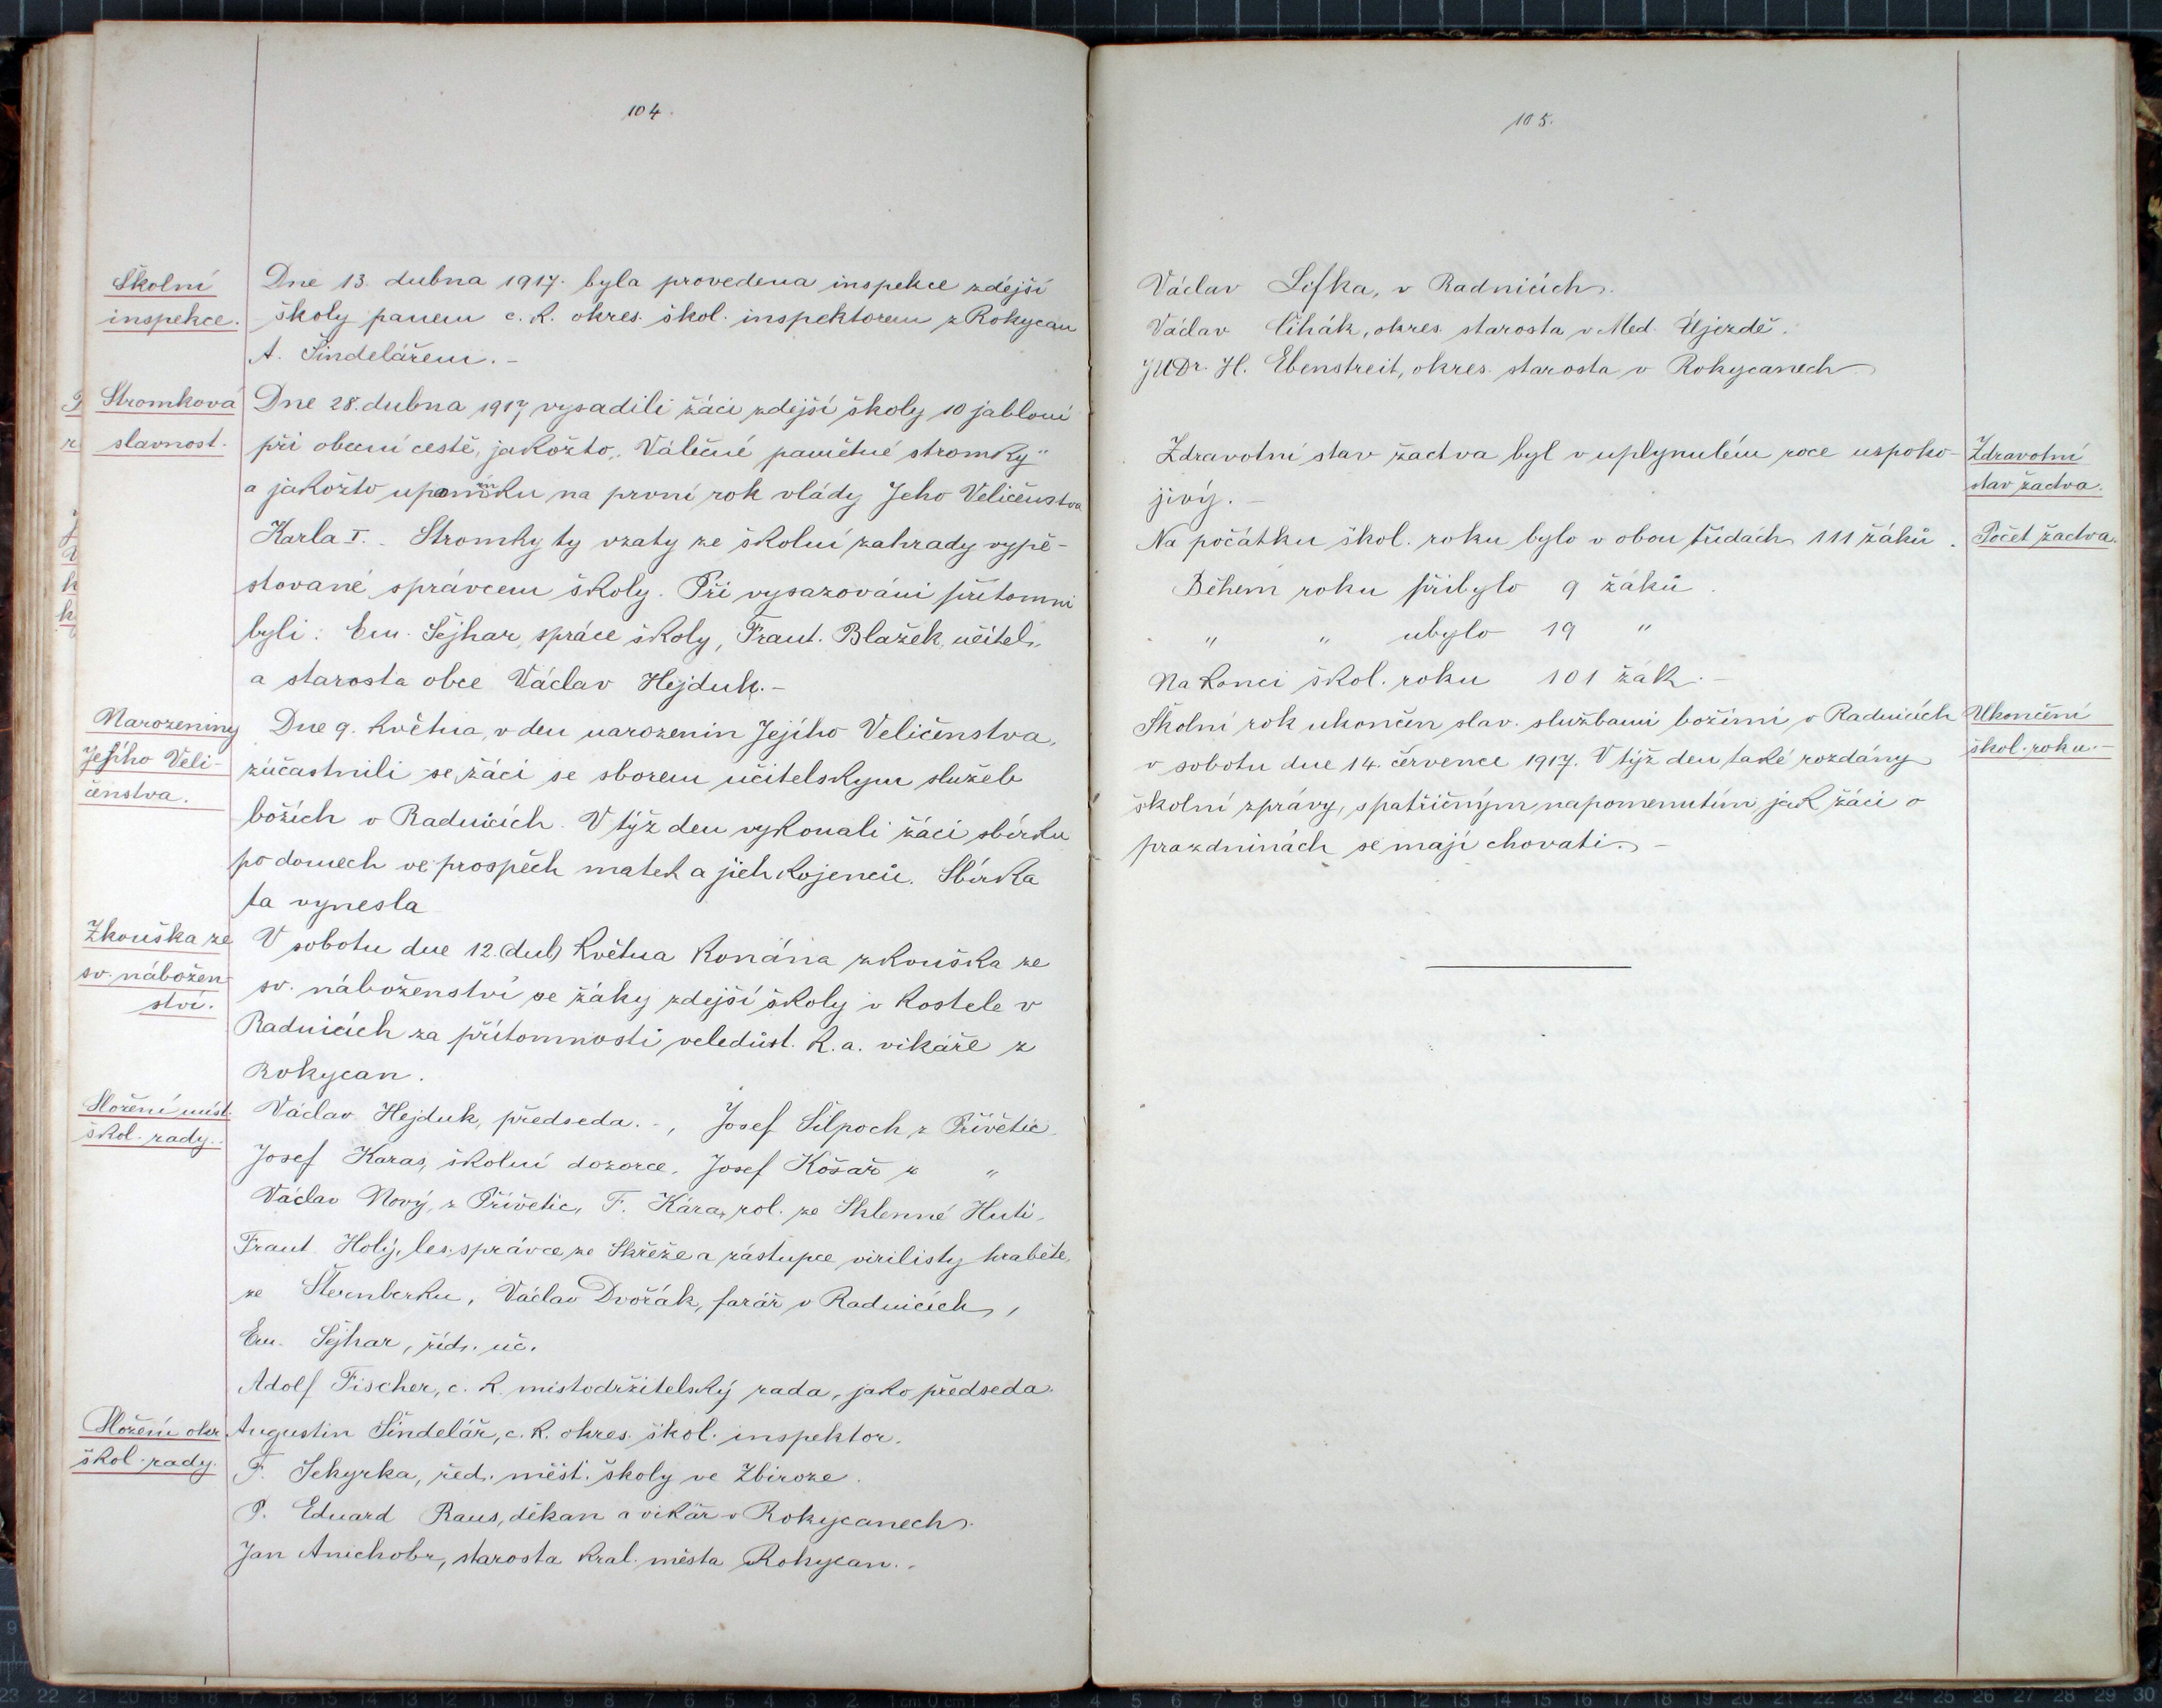 104.
Školní
inspekce.
Dne 13. dubna 1917. byla provedena inspekce zdejší
školy panem c. k. okres. škol. inspektorem z Rokycan
A. Šindelářem. –
Stromková
slavnost.
Dne 28. dubna 1917 vysadili žáci zdejší školy 10 jabloní
při obecní cestě, jakožto „Válečné pamětné stromky"
a jakožto upomínku na první rok vlády Jeho Veličenstva
Karla I. – Stromky ty vzaty ze školní zahrady vypě-
stované správcem školy. Při vysazování přítomni
byli: Em. Sejhar, správce školy, Frant. Blažek, učitel,
a starosta obce Václav Hejduk. –
Narozeniny
Jejího Veli-
čenstva.
Dne 9. května, v den narozenin Jejího Veličenstva,
zúčastnili se žáci se sborem učitelským služeb
božích v Radnicích. V týž den vykonali žáci sbírku
po domech ve prospěch matek a jich kojenců. Sbírka
ta vynesla
Zkouška ze
sv. nábožen-
ství.
V sobotu dne 12. (dub) května konána zkouška ze
sv. náboženství se žáky zdejší školy v kostele v
Radnicích za přítomnosti veledůst. k. a. vikáře z
Rokycan.
Složení míst.
škol. rady.
Václav Hejduk, předseda. –, Josef Šilpoch z Přívětic
Josef Karas, školní dozorce, Josef Košař z "
Václav Nový, z Přívětic, F. Kára, rol. ze Sklenné Huti,
Frant. Holý, les. správce ze Skřeže a zástupce virilisty hraběte
ze Šternberku, Václav Dvořák, farář v Radnicích,
Em. Sejhar, říd. uč.
Adolf Fischer, c. k. mistodržitelský rada, jako předseda.
Složení okr.
škol. rady.
Augustin Šindelář, c. k. okres. škol. inspektor.
F. Sekyrka, řed. měšť. školy ve Zbiroze.
P. Eduard Raus, děkan a vikář v Rokycanech.
Jan Anichobr, starosta král. města Rokycan.
105.
Václav Liška, v Radnicích.
Václav Cihák, okres. starosta v Med. Újezdě.
JUDr. H. Ebenstreit, okres. starosta v Rokycanech
Zdravotní stav žactva byl v uplynulém roce uspoko-
jivý. –
Zdravotní
stav žactva.
Na počátku škol. roku bylo v obou třídách 111 žáků.
Počet žactva.
Během roku přibylo 9 žáků.
" " ubylo 19 "
Na konci škol. roku 101 žák. –
Školní rok ukončen slav. službami božími v Radnicích
v sobotu dne 14. července 1917. V týž den také rozdány
školní zprávy, s patřičným napomenutím jak žáci o
prazdninách se mají chovati. –
Ukončení
škol. roku. –